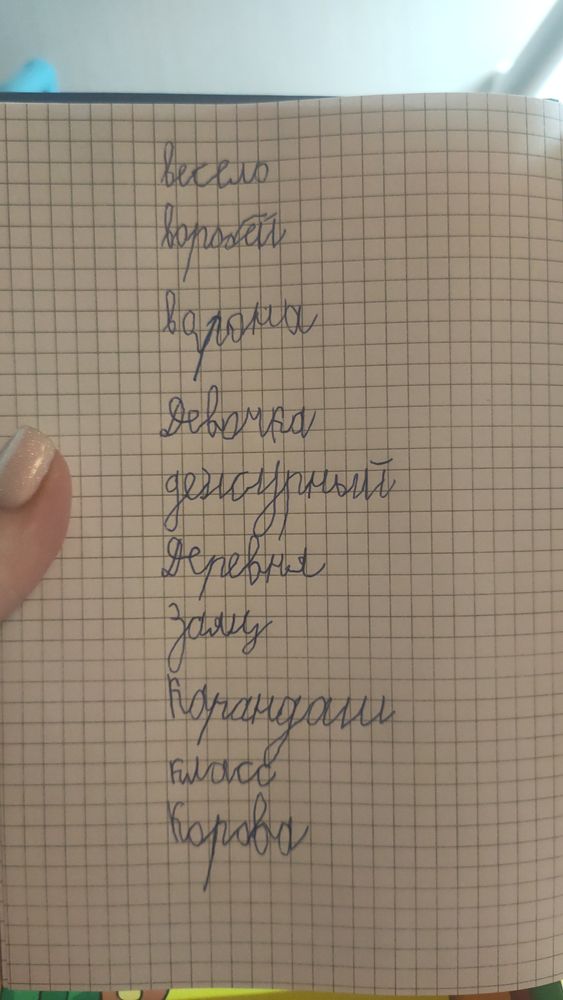 весело
воробей
варона
Девочка
дежурный
Деревня
Заяц
Карандаш
класс
Корова